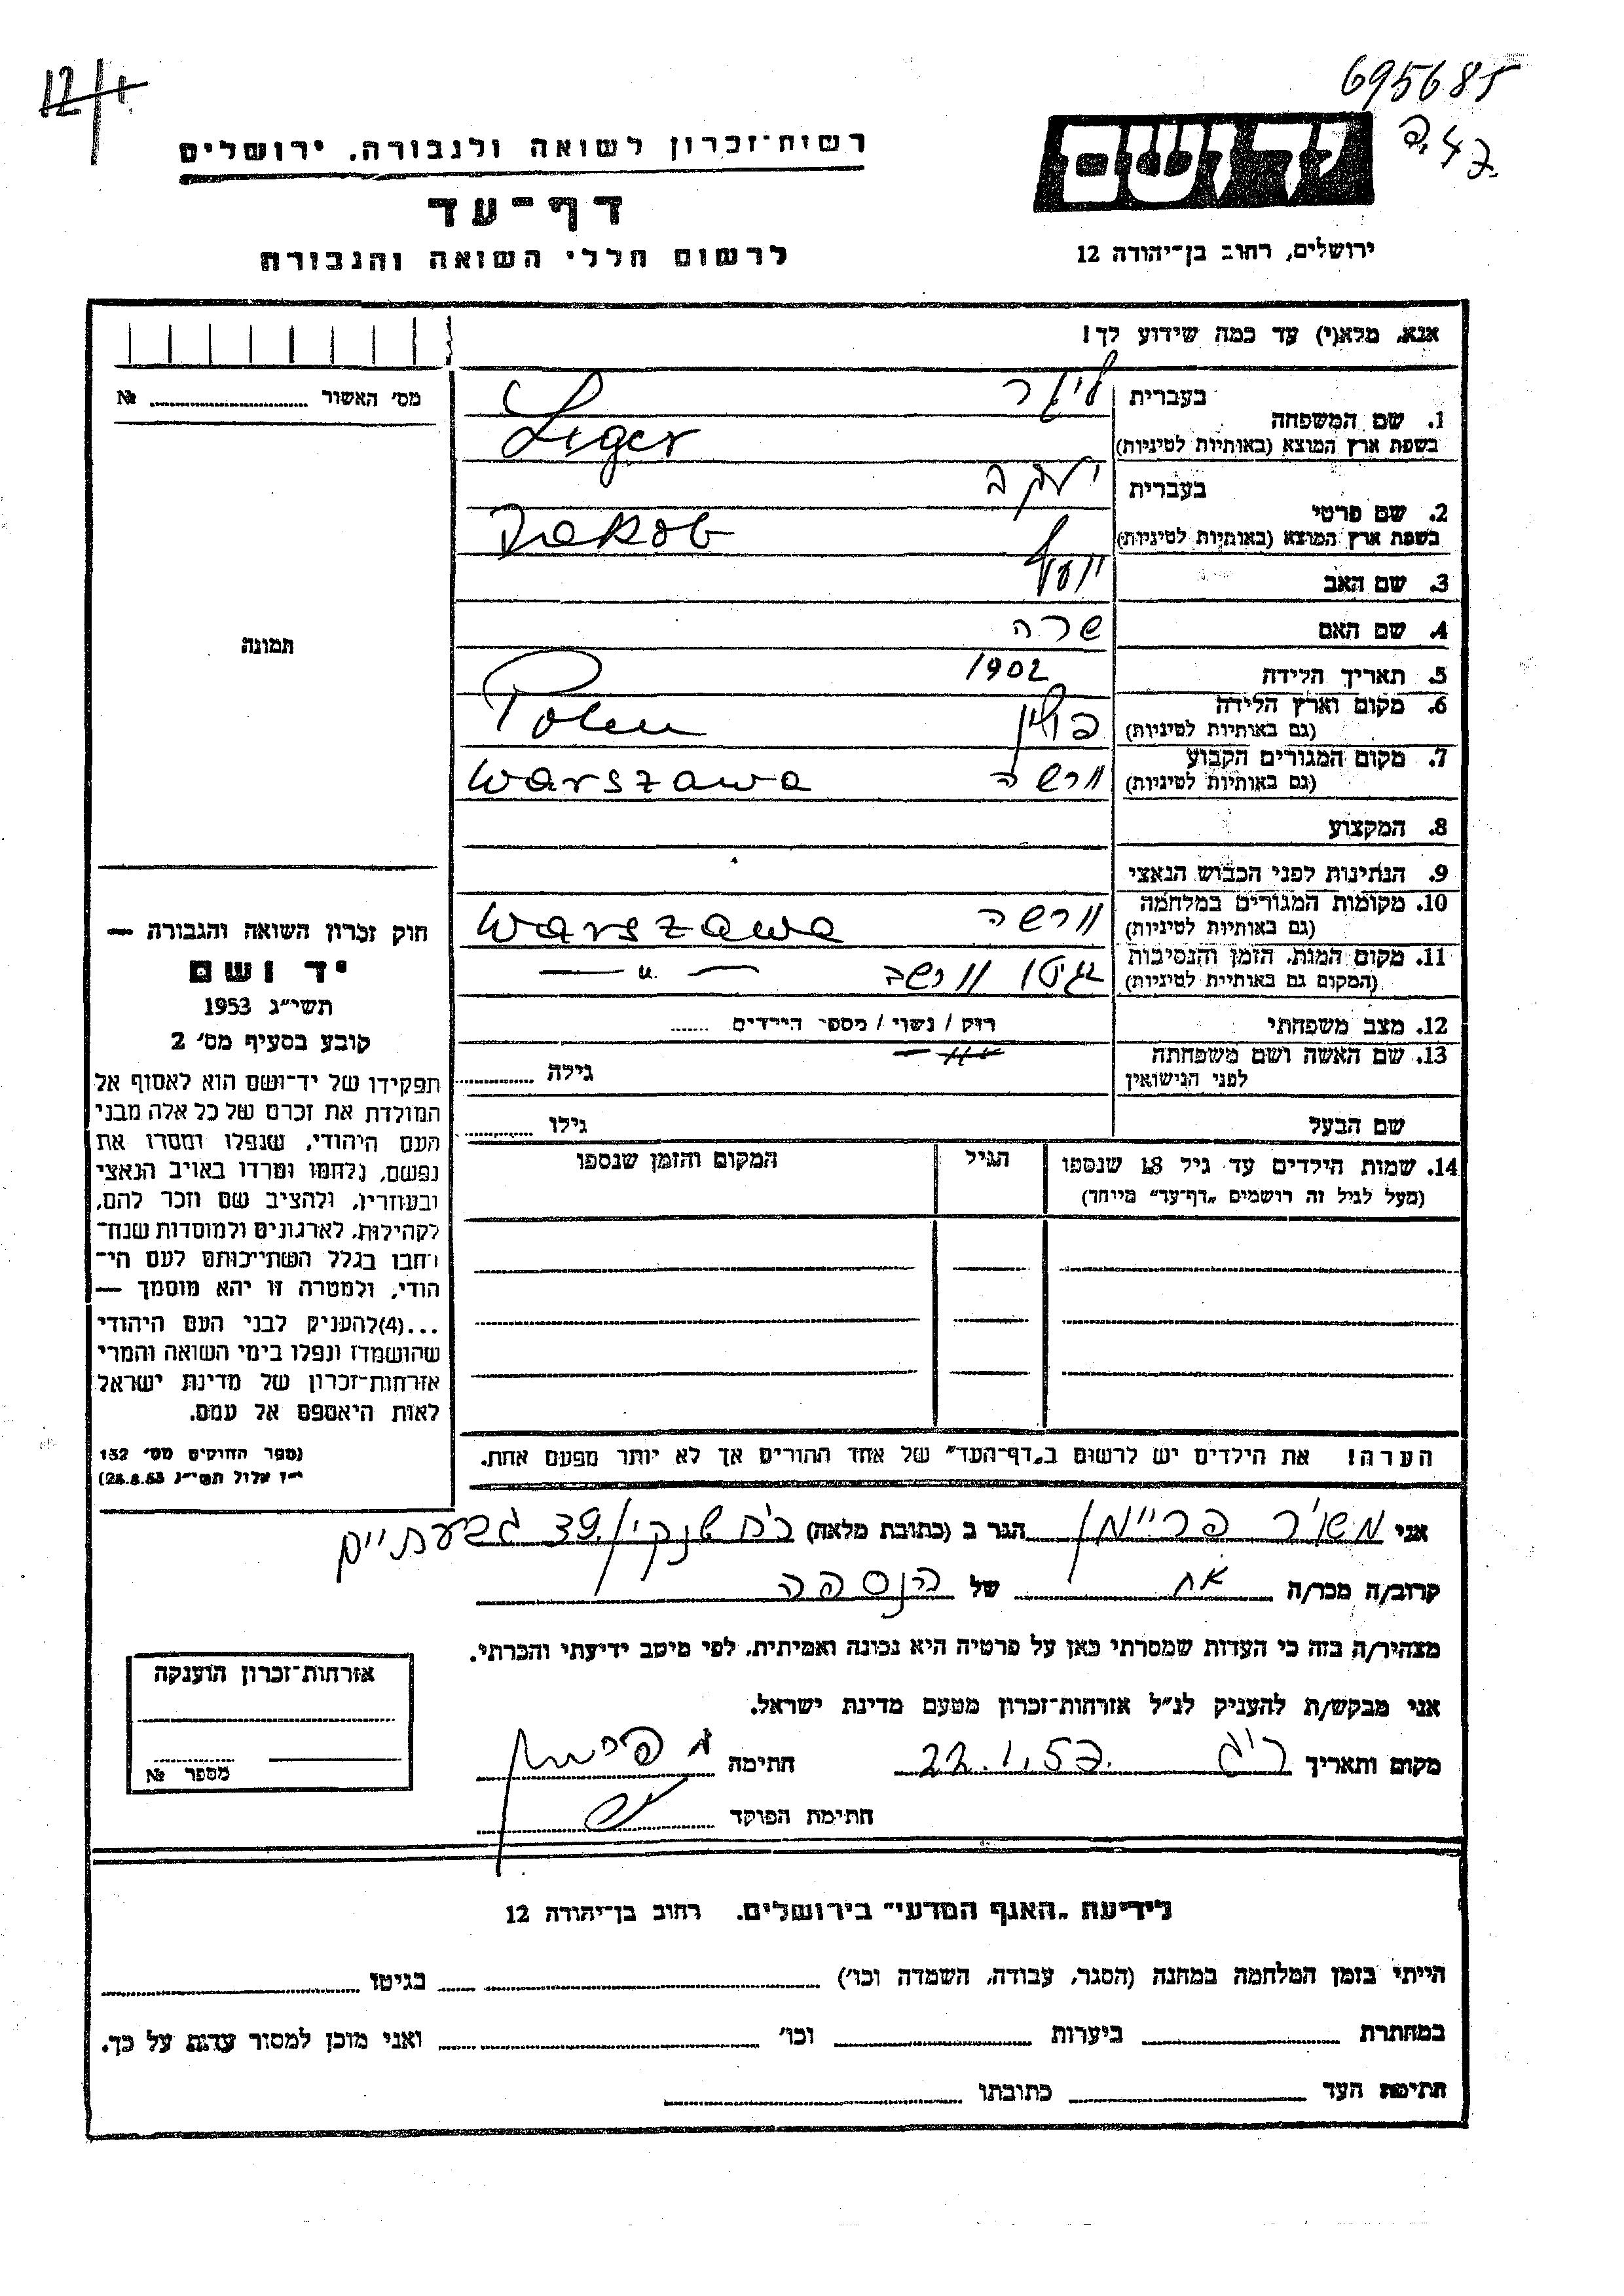 12/1
695685
רשות־זכרון לשואה ולגבורה, ירושלים
יד ושם
דף־עד
לרשום חללי השואה והגבורה
ירושלים, רחוב בן־יהודה 12
אנא, מלא(י) עד כמה שידוע לך!
מס׳ האשור № 
1. שם המשפחה
בעברית ליגר
בשפת ארץ המוצא (באותיות לטיניות) Liger
2. שם פרטי
בעברית יעקב
בשפת ארץ המוצא (באותיות לטיניות) Jakob
3. שם האב יוסף
4. שם האם שרה
תמונה
5. תאריך הלידה 1902
6. מקום וארץ הלידה
(גם באותיות לטיניות) פולין Polen
7. מקום המגורים הקבוע
(גם באותיות לטיניות) וורשה Warszawa
8. המקצוע
9. הנתינות לפני הכבוש הנאצי
10. מקומות המגורים במלחמה
(גם באותיות לטיניות) וורשה Warszawa
11. מקום המות, הזמן והנסיבות
(המקום גם באותיות לטיניות) גיטו וורשה — " —
12. מצב משפחתי רוק / נשוי / מספר הילדים
13. שם האשה ושם משפחתה
לפני הנישואין גילה
שם הבעל גילו
14. שמות הילדים עד גיל 18 שנספו
(מעל לגיל זה רושמים „דף־עד” מיוחד)
הגיל
המקום והזמן שנספו
הערה! את הילדים יש לרשום ב„דף־העד” של אחד ההורים אך לא יותר מפעם אחת.
חוק זכרון השואה והגבורה —
יד ושם
תשי״ג 1953
קובע בסעיף מס׳ 2
תפקידו של יד־ושם הוא לאסוף אל
המולדת את זכרם של כל אלה מבני
העם היהודי, שנפלו ומסרו את
נפשם, נלחמו ומרדו באויב הנאצי
ובעוזריו, ולהציב שם וזכר להם,
לקהילות, לארגונים ולמוסדות שנח־
רבו בגלל השתייכותם לעם הי־
הודי, ולמטרה זו יהא מוסמך —
...(4)להעניק לבני העם היהודי
שהושמדו ונפלו בימי השואה והמרי
אזרחות־זכרון של מדינת ישראל
לאות היאספם אל עמם.
(ספר החוקים מס׳ 132
י״ז אלול תשי״ג 28.8.53)
אני פריימן הגר ב (כתובת מלאה) גבעתיים
קרוב/ה מכר/ה אח של הנספה
מצהיר/ה בזה כי העדות שמסרתי כאן על פרטיה היא נכונה ואמיתית, לפי מיטב ידיעתי והכרתי.
אני מבקש/ת להעניק לנ״ל אזרחות־זכרון מטעם מדינת ישראל.
מקום ותאריך ר״ג 22.1.57 חתימה
חתימת הפוקד
אזרחות־זכרון הוענקה
מספר №
לידיעת „האגף המדעי” בירושלים, רחוב בן־יהודה 12
הייתי בזמן המלחמה במחנה (הסגר, עבודה, השמדה וכו׳) בגיטו
במחתרת ביערות וכו׳ ואני מוכן למסור עדות על כך.
חתימת העד כתובתו